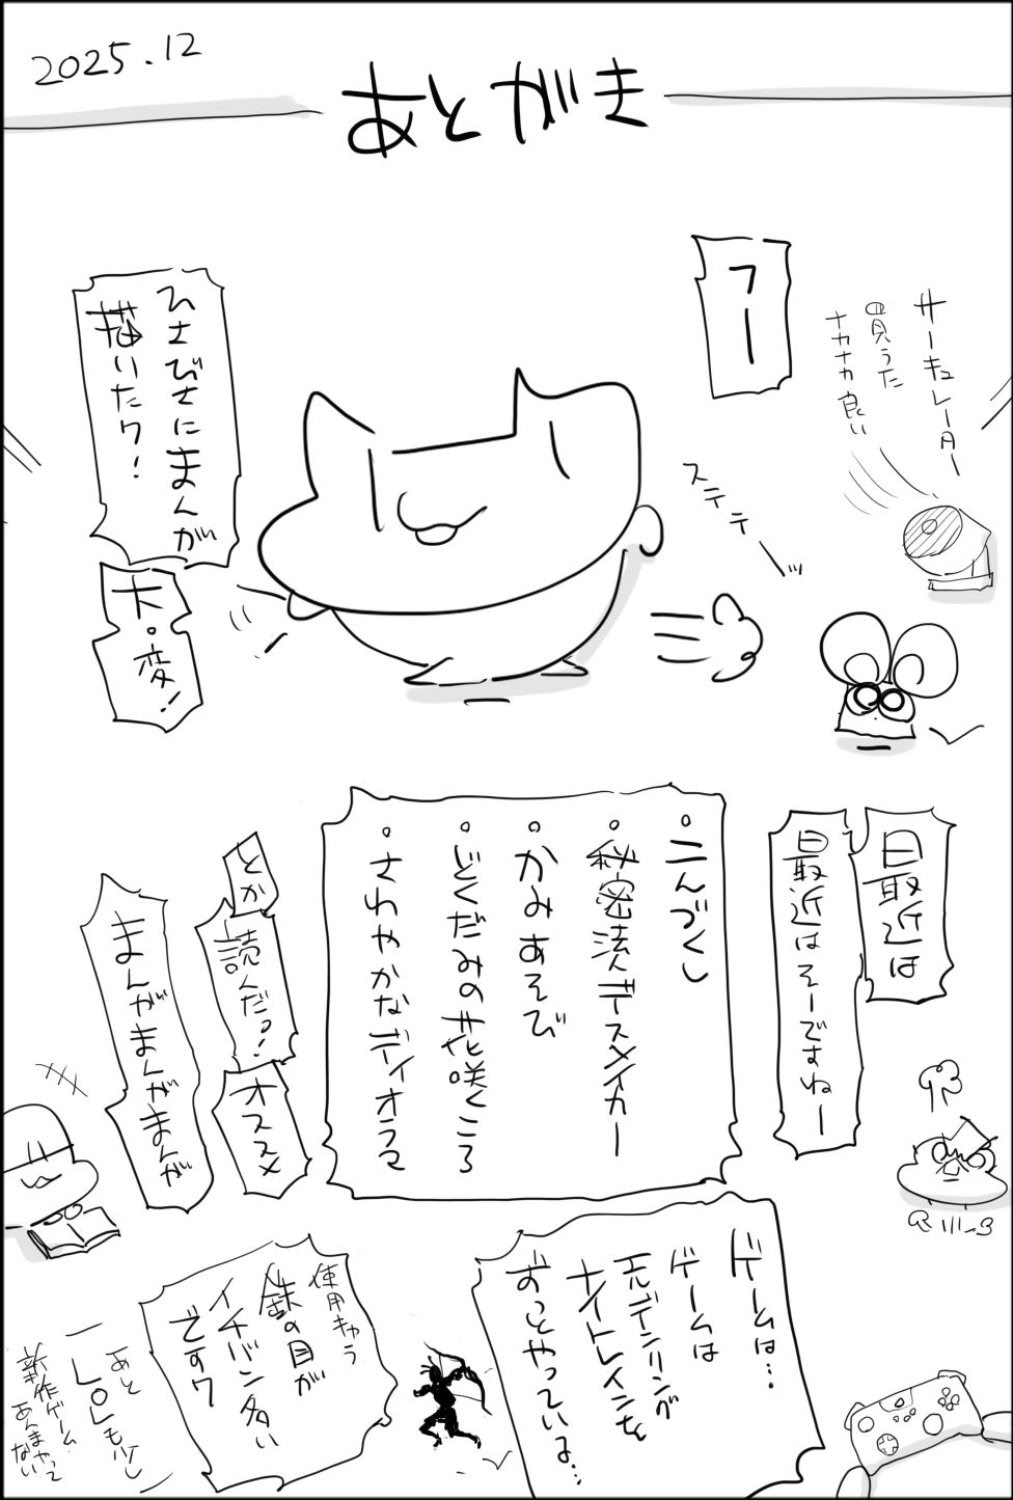 2025.12
あとがき
サーキュレーター
買うた
ナカナカ良い
フー
ステテーッ
ひさびさにまんが
描いたワ！
大。変！
最近は
最近はそーですねー
・二んづくし
・秘密法人デスメイカー
・かみあそび
・どくだみの花咲くころ
・さわやかなディオラマ
とか
読んだっ！
オススメ
まんがまんがまんが
ゲームは…
ゲームは
エルデンリング
ナイトレインを
ずっとやっているよ…
使用キャラ
鉄の目が
イチバン多い
ですワ
あと
LOLも少し
新作ゲーム
あんまやって
ない